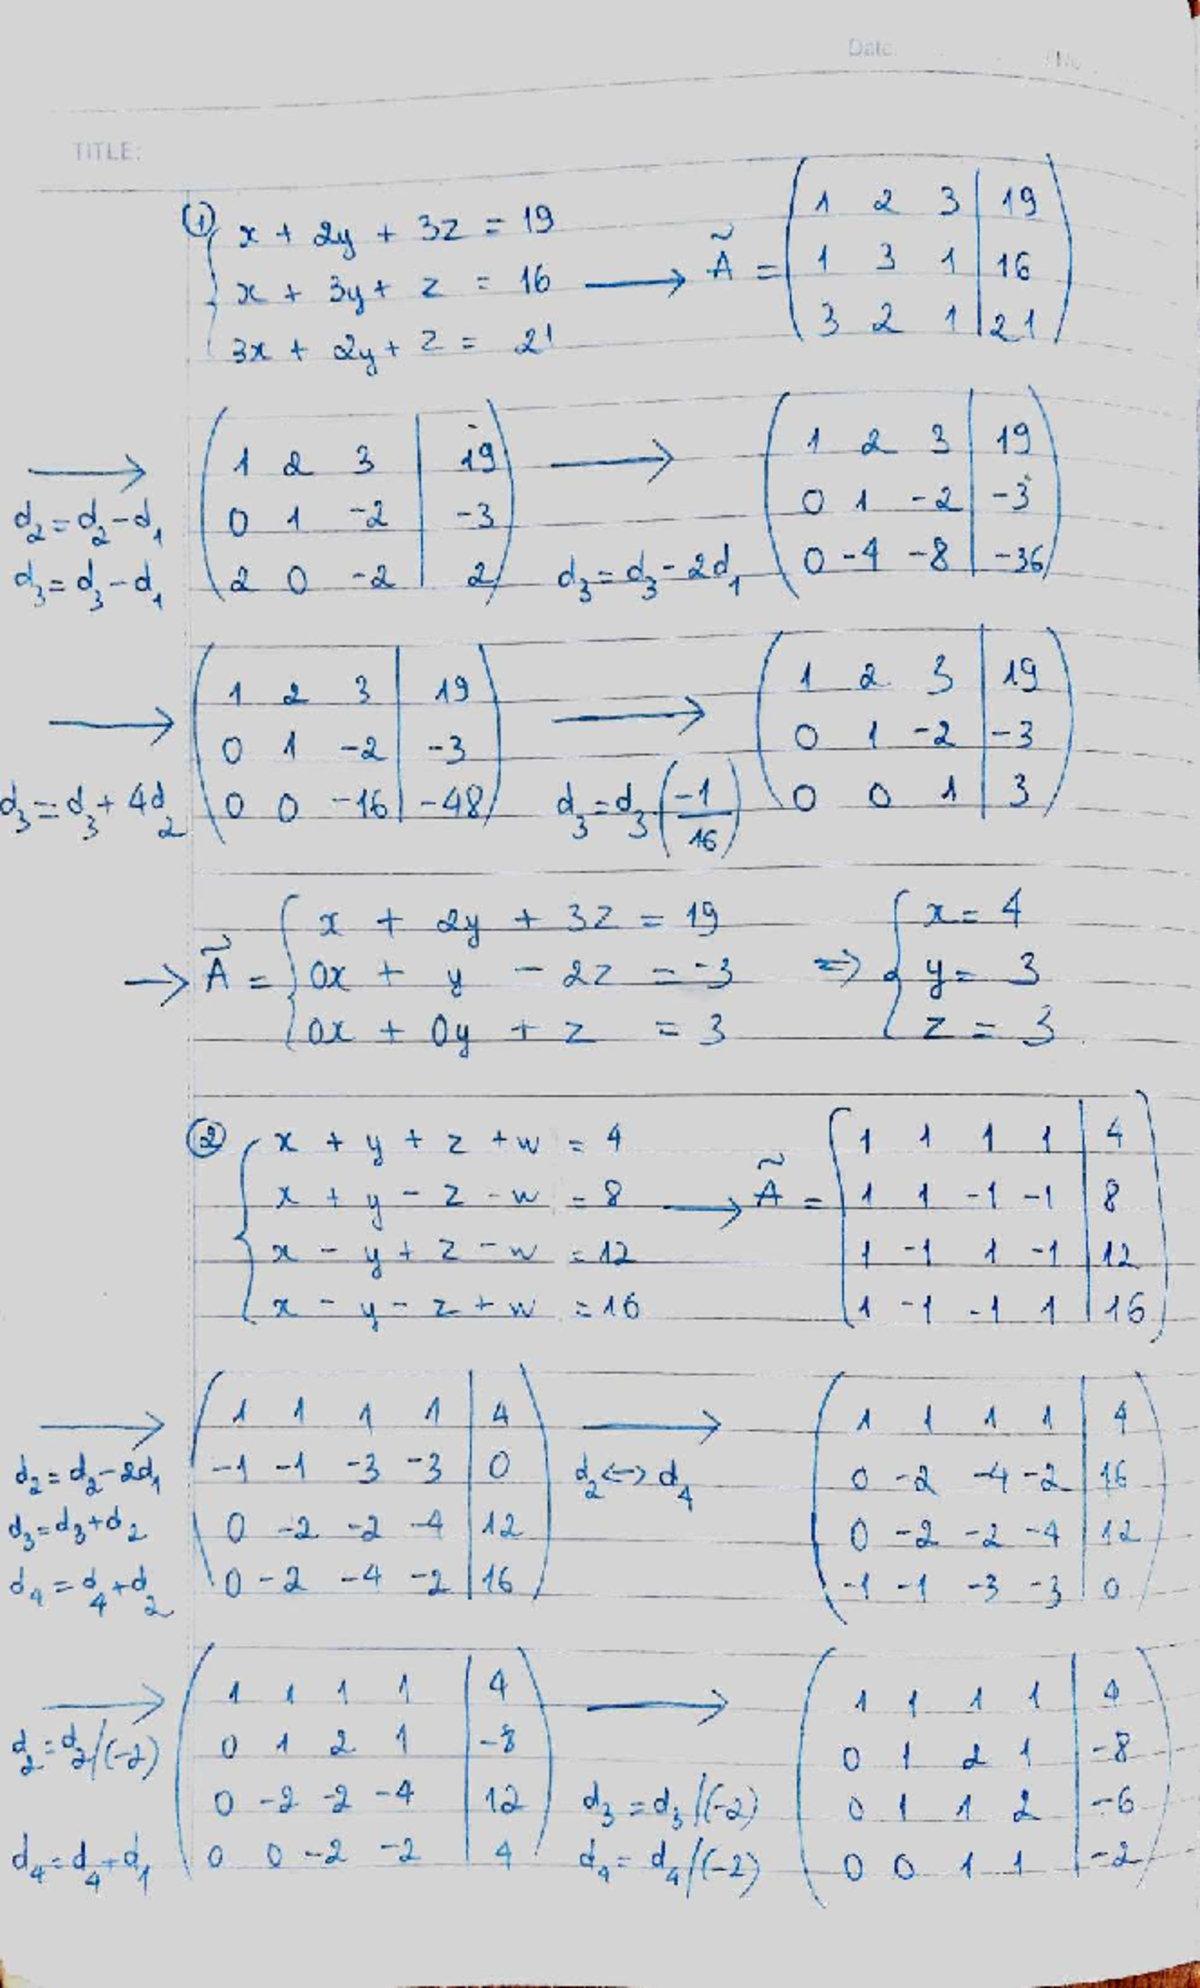 Date
TITLE:
① { x + 2y + 3z = 19
x + 3y + z = 16 ⟶ Ã = ( 1 2 3 | 19
1 3 1 | 16
3x + 2y + z = 21
3 2 1 | 21 )
⟶ d₂ = d₂ - d₁ d₃ = d₃ - d₁
( 1 2 3 | 19
0 1 -2 | -3
2 0 -2 | 2 )
⟶ d₃ = d₃ - 2d₁
( 1 2 3 | 19
0 1 -2 | -3
0 -4 -8 | -36 )
⟶ d₃ = d₃ + 4d₂
( 1 2 3 | 19
0 1 -2 | -3
0 0 -16 | -48 )
⟶ d₃ = d₃ (-1/16)
( 1 2 3 | 19
0 1 -2 | -3
0 0 1 | 3 )
→ Ã = { x + 2y + 3z = 19 ⇒ { x = 4
0x + y - 2z = -3 y = 3
0x + 0y + z = 3 z = 3
② { x + y + z + w = 4
x + y - z - w = 8
x - y + z - w = 12
x - y - z + w = 16
⟶ Ã = ( 1 1 1 1 | 4
1 1 -1 -1 | 8
1 -1 1 -1 | 12
1 -1 -1 1 | 16 )
⟶ d₂ = d₂ - 2d₁
d₃ = d₃ + d₂
d₄ = d₄ + d₂
( 1 1 1 1 | 4
-1 -1 -3 -3 | 0
0 -2 -2 -4 | 12
0 -2 -4 -2 | 16 )
⟶ d₂ ↔ d₄
( 1 1 1 1 | 4
0 -2 -4 -2 | 16
0 -2 -2 -4 | 12
-1 -1 -3 -3 | 0 )
⟶ d₂ = d₂/(-2)
d₄ = d₄ + d₁
( 1 1 1 1 | 4
0 1 2 1 | -8
0 -2 -2 -4 | 12
0 0 -2 -2 | 4 )
⟶ d₃ = d₃/(-2)
d₄ = d₄/(-2)
( 1 1 1 1 | 4
0 1 2 1 | -8
0 1 1 2 | -6
0 0 1 1 | -2 )